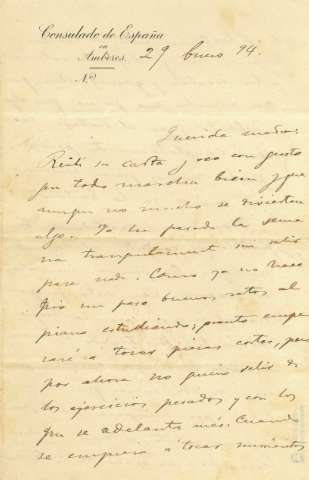 Consulado de España
en
Amberes.
29 Enero 94.
N.º
Querida madre:
Recibí su carta y veo con gusto
que todo marcha bien y que
aunque no mucho se divierten
algo. Yo he pasado la sema
na tranquilamente sin salir
para nada. Como ya no hace
frio me paso buenos ratos al
piano estudiando; pronto empe
zaré a tocar piezas cortas, pero
por ahora no quiero salir de
los ejercicios pesados y con los
que se adelanta más. Cuando
se empieza á tocar